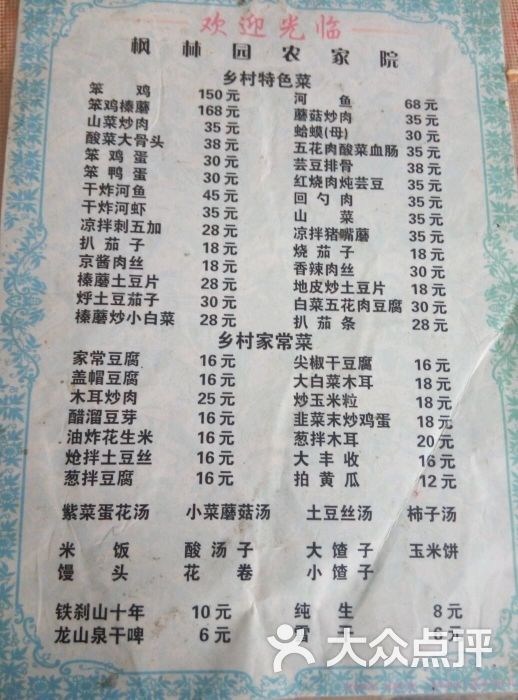 欢迎光临
枫林园农家院
乡村特色菜
笨鸡 150元 河鱼 68元
笨鸡榛蘑 168元 蘑菇炒肉 35元
山菜炒肉 35元 蛤蟆(母) 30元
酸菜大骨头 38元 五花肉酸菜血肠 35元
笨鸡蛋 30元 芸豆排骨 38元
笨鸭蛋 30元 红烧肉炖芸豆 35元
干炸河鱼 45元 回勺肉 35元
干炸河虾 35元 山菜 35元
凉拌刺五加 28元 凉拌猪嘴蘑 35元
扒茄子 18元 烧茄子 18元
京酱肉丝 18元 香辣肉丝 30元
榛蘑土豆片 28元 地皮炒土豆丝 18元
烀土豆茄子 30元 白菜五花肉豆腐 30元
榛蘑炒小白菜 28元 扒茄条 28元
乡村家常菜
家常豆腐 16元 尖椒干豆腐 16元
盖帽豆腐 16元 大白菜木耳 18元
木耳炒肉 25元 炒玉米粒 18元
醋溜豆芽 16元 韭菜末炒鸡蛋 18元
油炸花生米 16元 葱拌木耳 20元
炝拌土豆丝 16元 大丰收 16元
葱拌豆腐 16元 拍黄瓜 12元
紫菜蛋花汤 小菜蘑菇汤 土豆丝汤 柿子汤
米饭 酸汤子 大馇子 玉米饼
馒头 花卷 小馇子
铁刹山十年 10元 纯生 8元
龙山泉干啤 6元 6元
大众点评